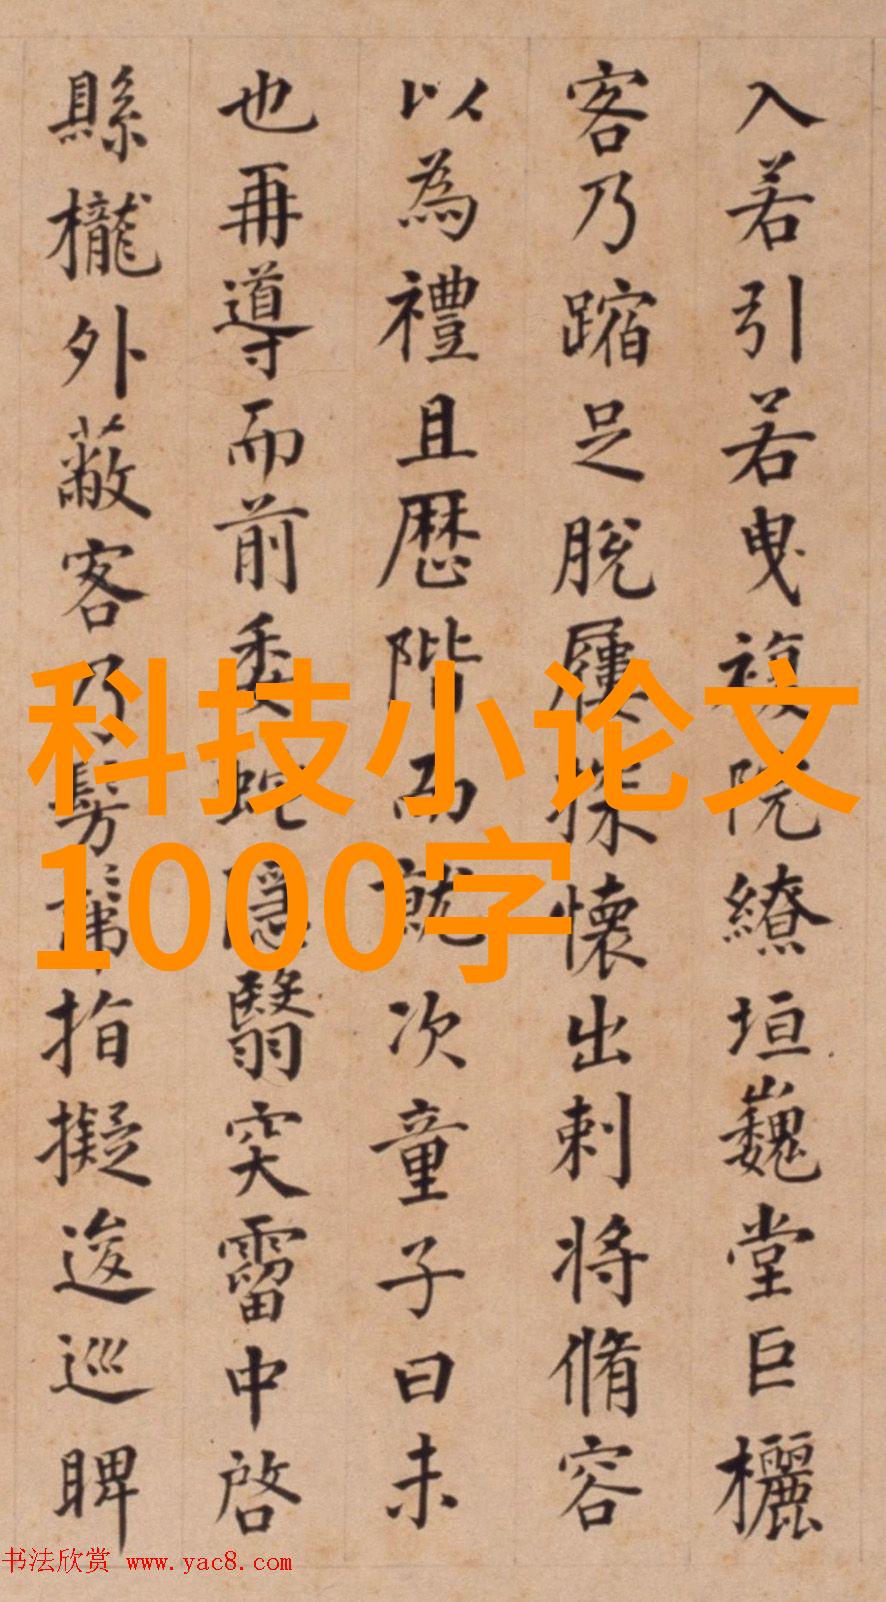 入若引若曳複院繚垣巍堂巨欐
客乃蹜足脫屨探懷出刺將脩容
以為禮且歷階而就次童子曰未
也再導而前委蛇隱翳穾霤中啓
縣櫳外蔽客乃髣髴指擬逡巡睥
科技小论文
1000字
书法欣赏 www.yac8.com